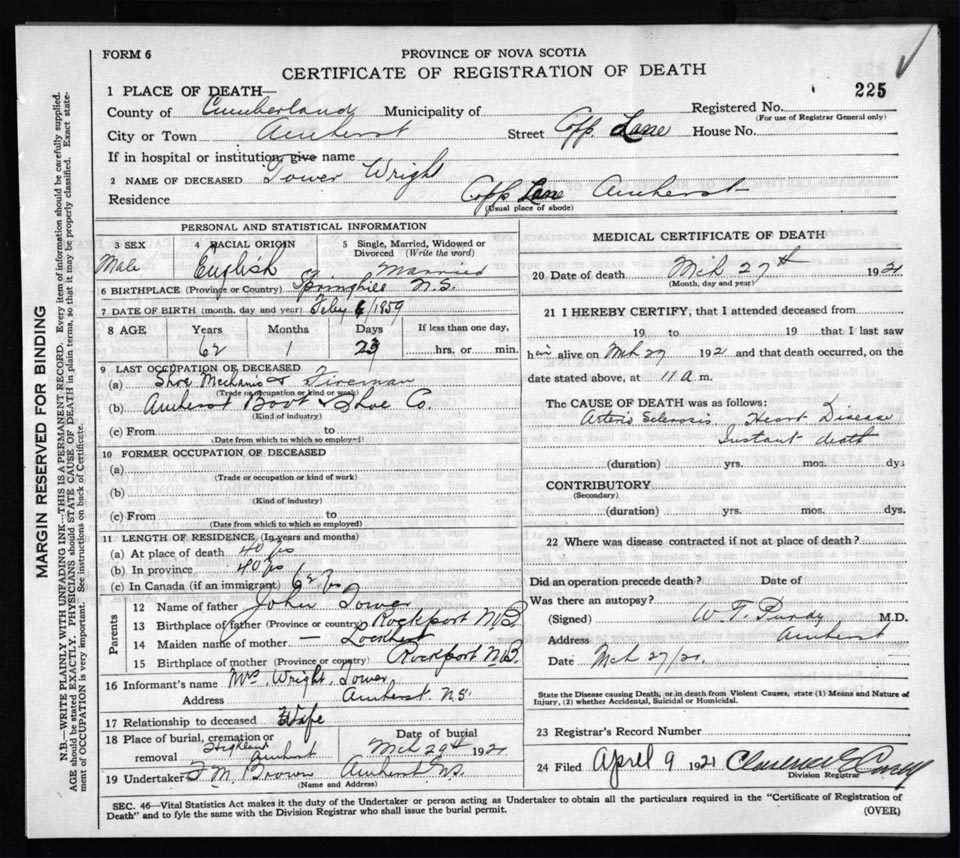 FORM 6
PROVINCE OF NOVA SCOTIA
CERTIFICATE OF REGISTRATION OF DEATH
1 PLACE OF DEATH—
225
County of Cumberland Municipality of Registered No.
(For use of Registrar General only)
City or Town Amherst Street Copp Lane House No.
If in hospital or institution, give name
2 NAME OF DECEASED Tower Wright
Residence Copp Lane Amherst
(Usual place of abode)
PERSONAL AND STATISTICAL INFORMATION
3 SEX Male
4 RACIAL ORIGIN English
5 Single, Married, Widowed or Divorced (Write the word) Married
6 BIRTHPLACE (Province or Country) Springhill N.S.
7 DATE OF BIRTH (month, day and year) Feby 6/1859
8 AGE Years Months Days If less than one day,
62 1 23 hrs. or min.
9 LAST OCCUPATION OF DECEASED
(a) Shoe Mechanic & Fireman
(Trade or occupation or kind of work)
(b) Amherst Boot & Shoe Co.
(Kind of industry)
(c) From to
(Date from which to which so employed)
10 FORMER OCCUPATION OF DECEASED
(a)
(Trade or occupation or kind of work)
(b)
(Kind of industry)
(c) From to
(Date from which to which so employed)
11 LENGTH OF RESIDENCE (In years and months)
(a) At place of death 40 yrs
(b) In province 40 yrs
(c) In Canada (if an immigrant) 62 yrs
Parents
12 Name of father John Tower
13 Birthplace of father (Province or country) Rockport N.B.
14 Maiden name of mother — Lockhart
15 Birthplace of mother (Province or country) Rockport N.B.
16 Informant's name Mrs. Wright Tower
Address Amherst N.S.
17 Relationship to deceased Wife
18 Place of burial, cremation or removal Highland Amherst
Date of burial Mch 29th 1921
19 Undertaker F. M. Brown Amherst N.S.
(Name and Address)
MEDICAL CERTIFICATE OF DEATH
20 Date of death Mch 27th 1921
(Month, day and year)
21 I HEREBY CERTIFY, that I attended deceased from
19 to 19 that I last saw
him alive on Mch 27 1921 and that death occurred, on the
date stated above, at 11 a m.
The CAUSE OF DEATH was as follows:
Arterio Sclerosis Heart Disease
Instant death
(duration) yrs. mos. dys
CONTRIBUTORY
(Secondary)
(duration) yrs. mos. dys.
22 Where was disease contracted if not at place of death?
Did an operation precede death? Date of
Was there an autopsy?
(Signed) W. T. Purdy M.D.
Address Amherst
Date Mch 27/21.
State the Disease causing Death, or in death from Violent Causes, state (1) Means and Nature of
Injury, (2) whether Accidental, Suicidal or Homicidal.
23 Registrar's Record Number
24 Filed April 9 1921 Clarence E
Division Registrar
SEC. 46—Vital Statistics Act makes it the duty of the Undertaker or person acting as Undertaker to obtain all the particulars required in the "Certificate of Registration of
Death" and to fyle the same with the Division Registrar who shall issue the burial permit.
(OVER)
MARGIN RESERVED FOR BINDING
N.B.—WRITE PLAINLY WITH UNFADING INK—THIS IS A PERMANENT RECORD. Every item of information should be carefully supplied.
AGE should be stated EXACTLY. PHYSICIANS should STATE CAUSE OF DEATH in plain terms, so that it may be properly classified. Exact state-
ment of OCCUPATION is very important. See instructions on back of Certificate.